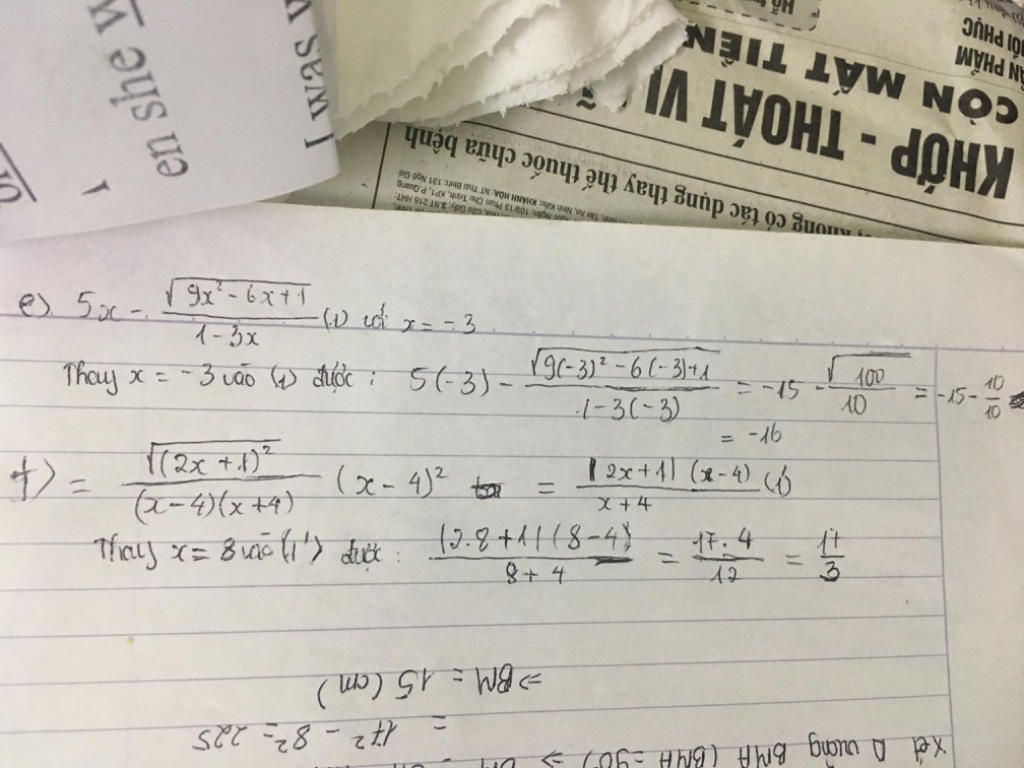 e). 5x - \frac{\sqrt{9x^2 - 6x + 1}}{1 - 3x} (1) với x = -3
Thay x = -3 vào (1) được : 5(-3) - \frac{\sqrt{9(-3)^2 - 6(-3)+1}}{1 - 3(-3)} = -15 - \frac{\sqrt{100}}{10} = -15 - \frac{10}{10}
= -16
f) = \frac{\sqrt{(2x+1)^2}}{(x-4)(x+4)} (x-4)^2 = \frac{|2x+1| (x-4)}{x+4} (1')
Thay x = 8 vào (1') được : \frac{|2.8+1| (8-4)}{8+4} = \frac{17.4}{12} = \frac{17}{3}
Xét Δ vuông BMA (BMA = 90°) ⇒
= 17² - 8² = 225
⇒ BM = 15 (cm)
KHỚP - THOÁT VỊ
CÒN MẤT TIỀN
không có tác dụng thay thế thuốc chữa bệnh
en she w
I was